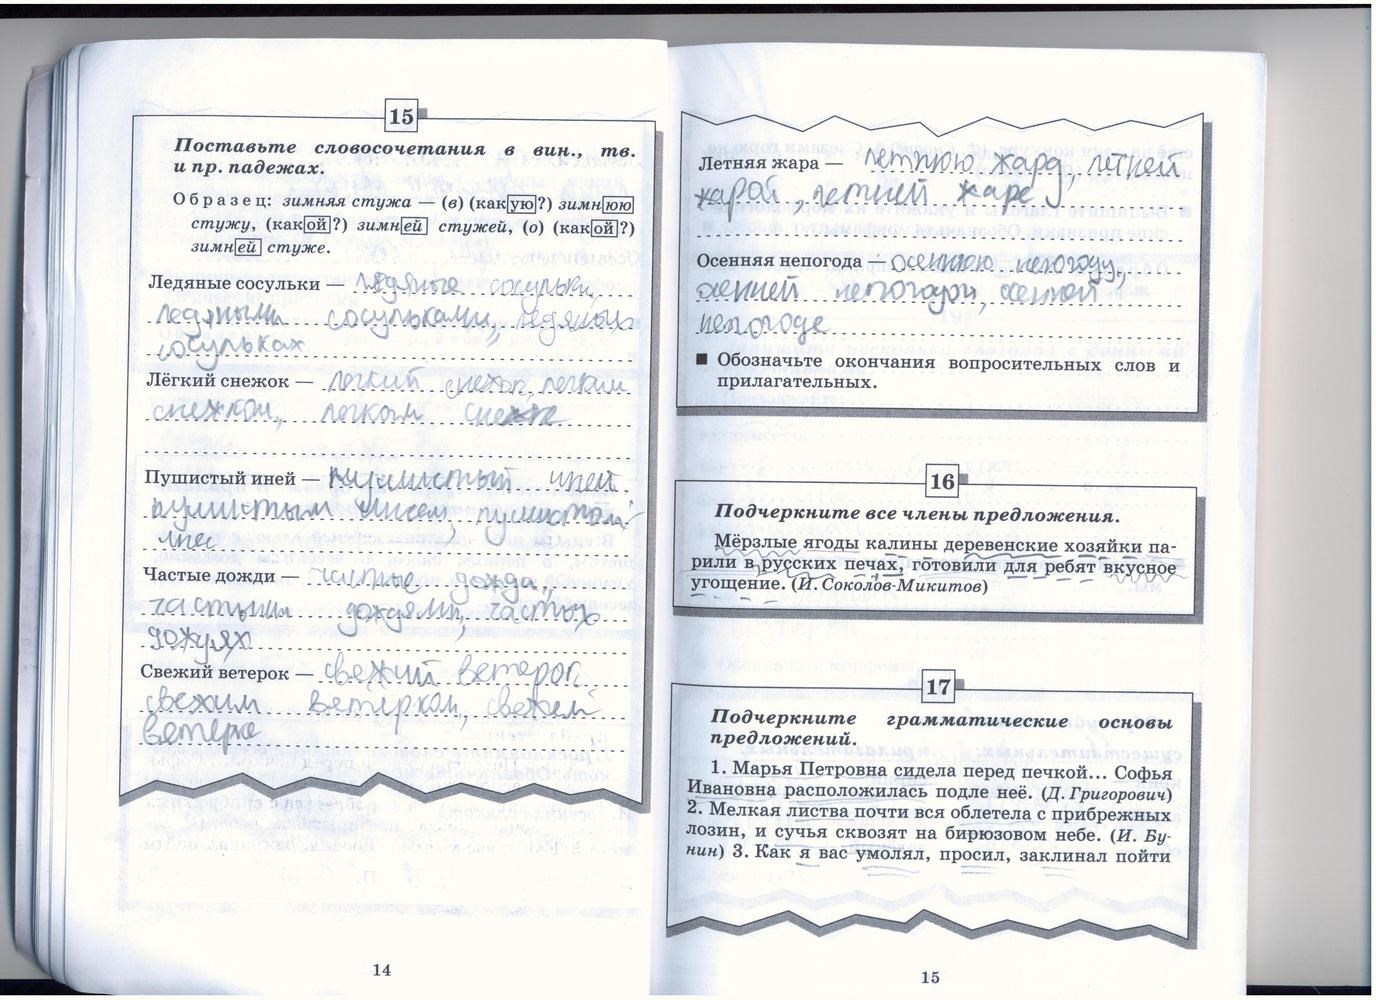 15
Поставьте словосочетания в вин., тв.
и пр. падежах.
Образец: зимняя стужа — (в) (какую?) зимнюю
стужу, (какой?) зимней стужей, (о) (какой?)
зимней стуже.
Ледяные сосульки — ледяные сосульки,
ледяными сосульками, ледяных
сосульках
Лёгкий снежок — легкий снежок, легким
снежком, легком снежке
Пушистый иней — пушистый иней
пушистым инеем, пушистом
инее
Частые дожди — частые дожди,
частыми дождями, частых
дождях
Свежий ветерок — свежий ветерок
свежим ветерком, свежем
ветерке
14
Летняя жара — летнюю жару, летней
жарой, летней жаре
Осенняя непогода — осеннюю непогоду,
осенней непогодой, осенней
непогоде
■ Обозначьте окончания вопросительных слов и
прилагательных.
16
Подчеркните все члены предложения.
Мёрзлые ягоды калины деревенские хозяйки па-
рили в русских печах, готовили для ребят вкусное
угощение. (И. Соколов-Микитов)
17
Подчеркните грамматические основы
предложений.
1. Марья Петровна сидела перед печкой... Софья
Ивановна расположилась подле неё. (Д. Григорович)
2. Мелкая листва почти вся облетела с прибрежных
лозин, и сучья сквозят на бирюзовом небе. (И. Бу-
нин) 3. Как я вас умолял, просил, заклинал пойти
15